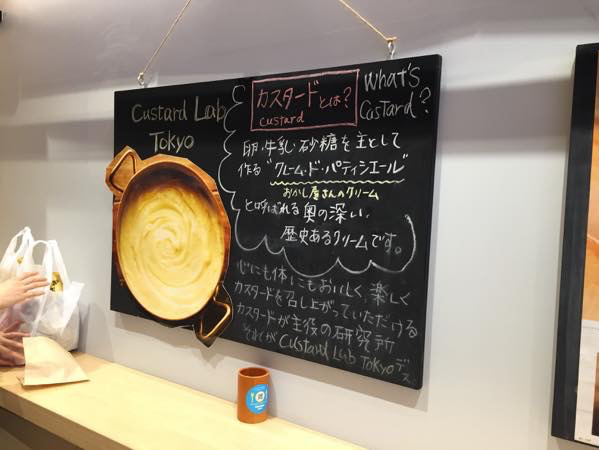 Custard Lab
Tokyo
カスタードとは?
custard
What's
Castard?
卵・牛乳・砂糖を主として
作る"クレーム・ド・パティシエール"
おかし屋さんのクリーム
と呼ばれる奥の深い、
歴史あるクリームです。
心にも体にもおいしく、楽しく
カスタードを召し上がっていただける
カスタードが主役の研究所
それが Custard Lab Tokyoデス。